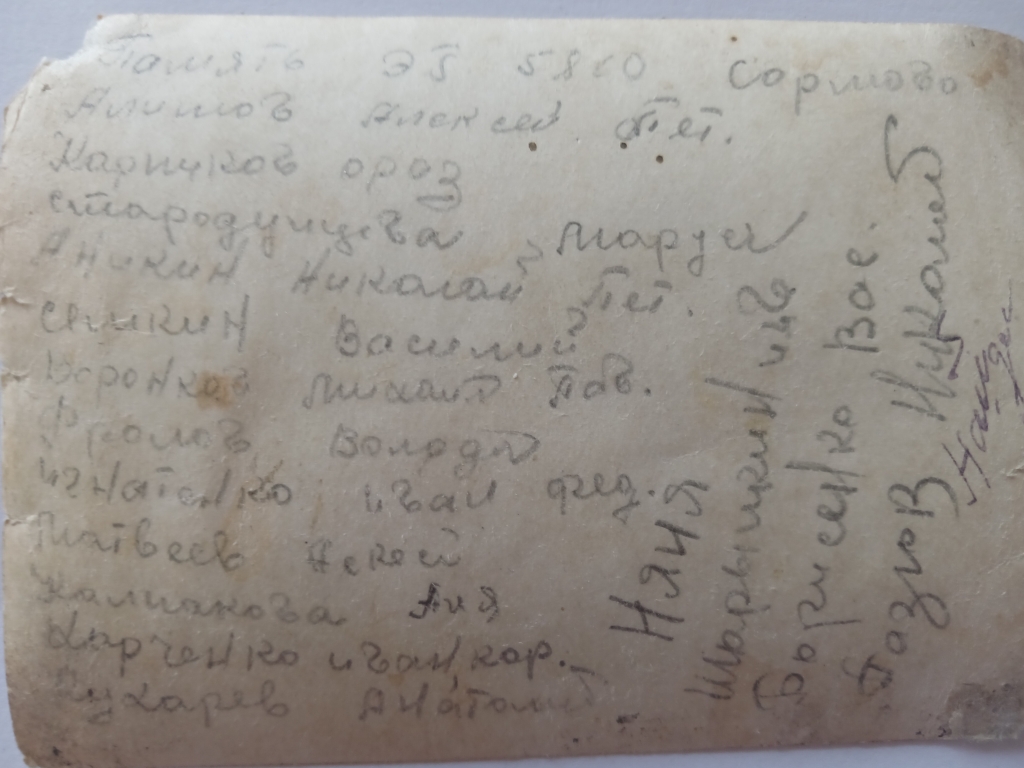 Память ЭГ 5810 Сормово
Алимов Алексей Пет.
Карпуков ороз
стародумцева маруся
Аникин Николай Пет.
сникин Василий
Воронков михаил Пав.
Фролов Володя
игнатенко иван фед.
матвеев
Колмакова Аня
Харченко иван кор.
Кухарев Анатолий
Няня
ив
Борисенко Вас.
Николай